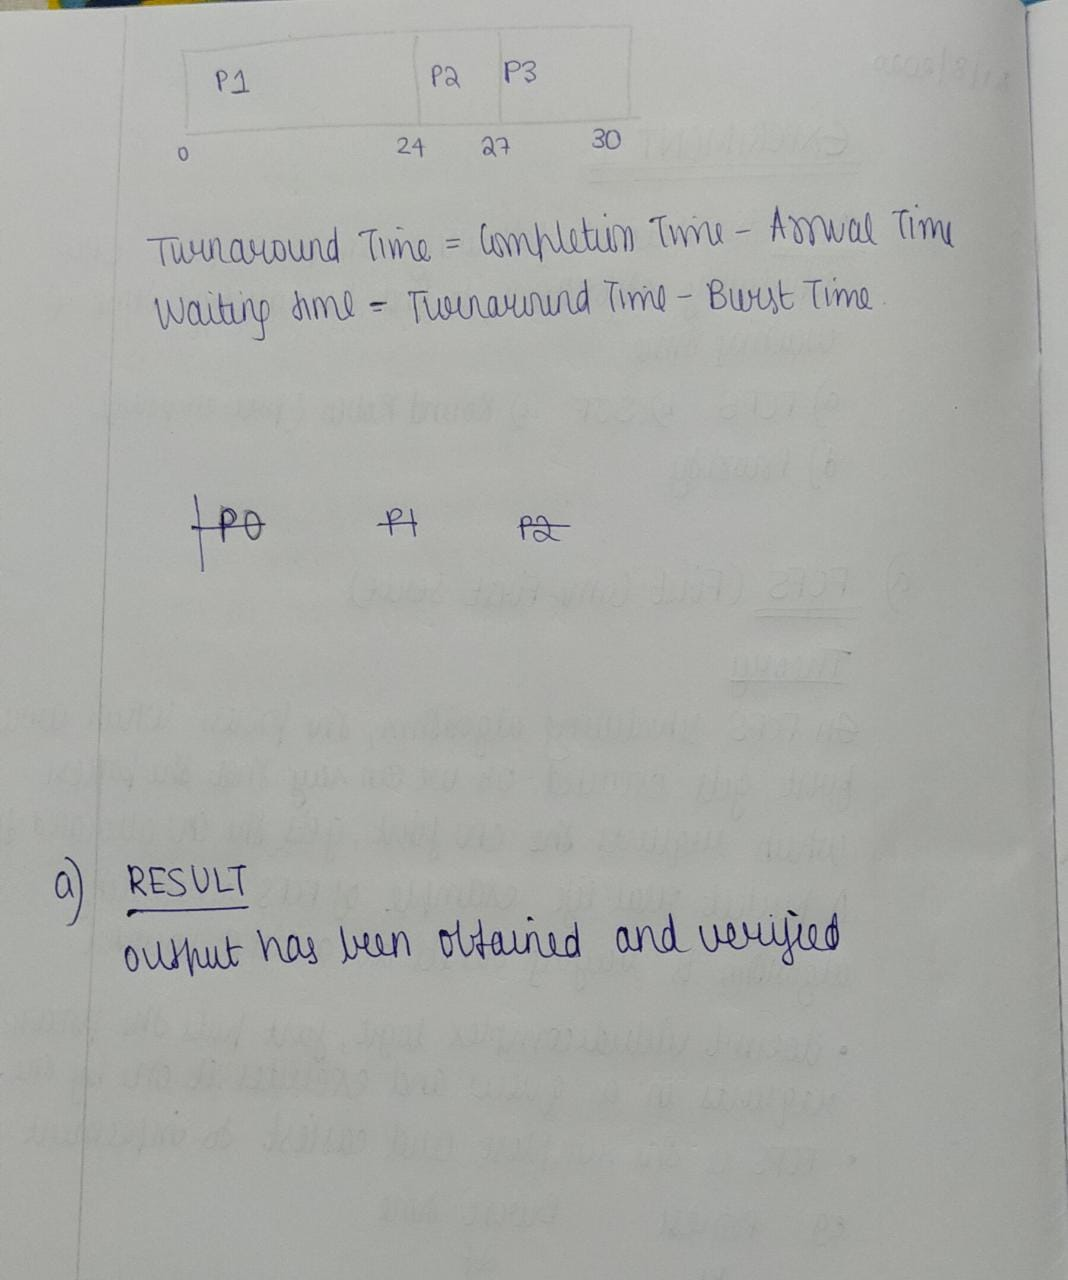 P1 P2 P3
0 24 27 30
Turnaround Time = Completion Time - Arrival Time
Waiting time = Turnaround Time - Burst Time
P0 P1 P2
a) RESULT
output has been obtained and verified